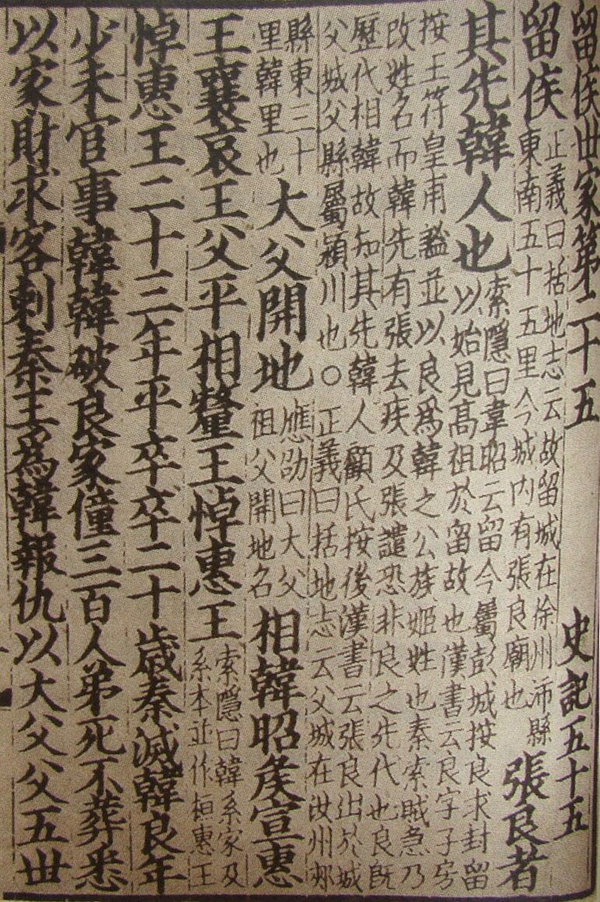 留侯世家第二十五　史記五十五
留侯正義曰括地志云故留城在徐州沛縣東南五十五里今城內有張良廟也張良者
其先韓人也索隱曰韋昭云留今屬彭城按良求封留以始見高祖於留故也漢書云良字子房
按王符皇甫謐並以良爲韓之公族姬姓也秦索賊急乃
改姓名而韓先有張去疾及張譴恐非良之先代也良既
歷代相韓故知其先韓人顧氏按後漢書云張良出於城
父城父縣屬潁川也○正義曰括地志云父城在汝州郟
縣東三十里韓里也大父開地應劭曰大父祖父開地名相韓昭侯宣惠
王襄哀王父平相釐王悼惠王索隱曰韓系家及系本並作桓惠王
悼惠王二十三年平卒卒二十歲秦滅韓良年
少未官事韓韓破良家僮三百人弟死不葬悉
以家財求客刺秦王爲韓報仇以大父父五世